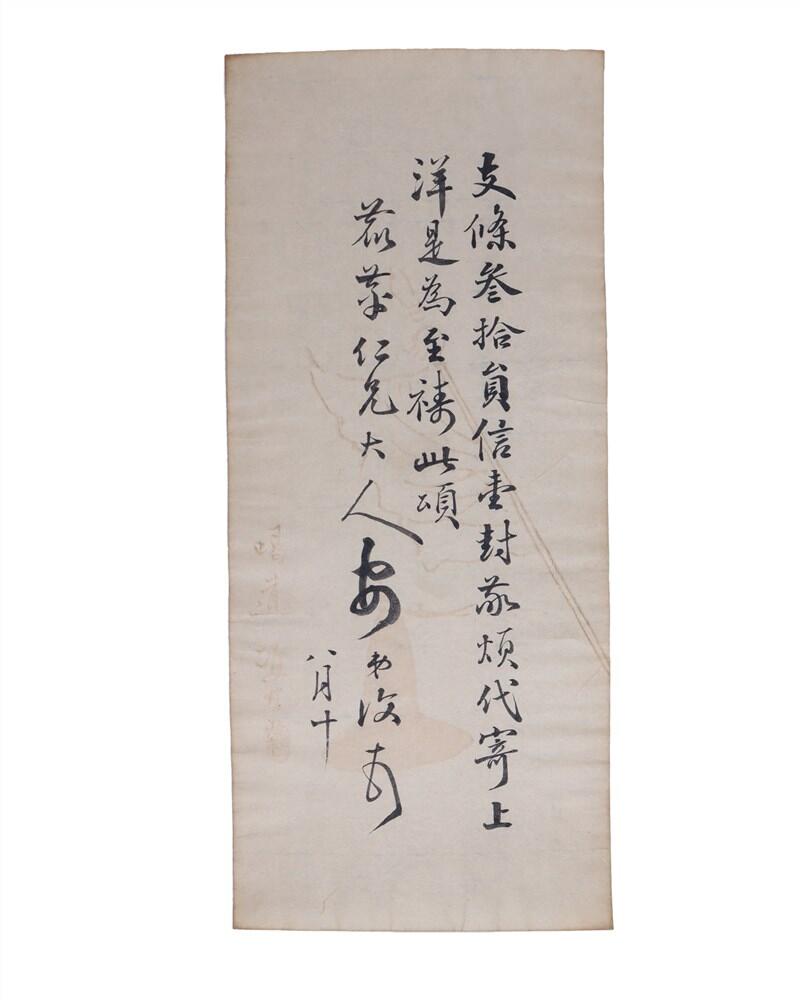 支條叁拾員信壹封敬煩代寄上
洋是為至禱此頌
仁兄大人安 弟
八月十